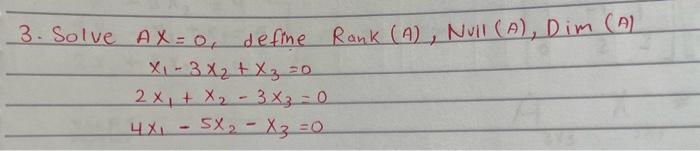 3. Solve AX = 0, define Rank (A), Null (A), Dim (A)
x₁ - 3x₂ + x₃ = 0
2x₁ + x₂ - 3x₃ = 0
4x₁ - 5x₂ - x₃ = 0